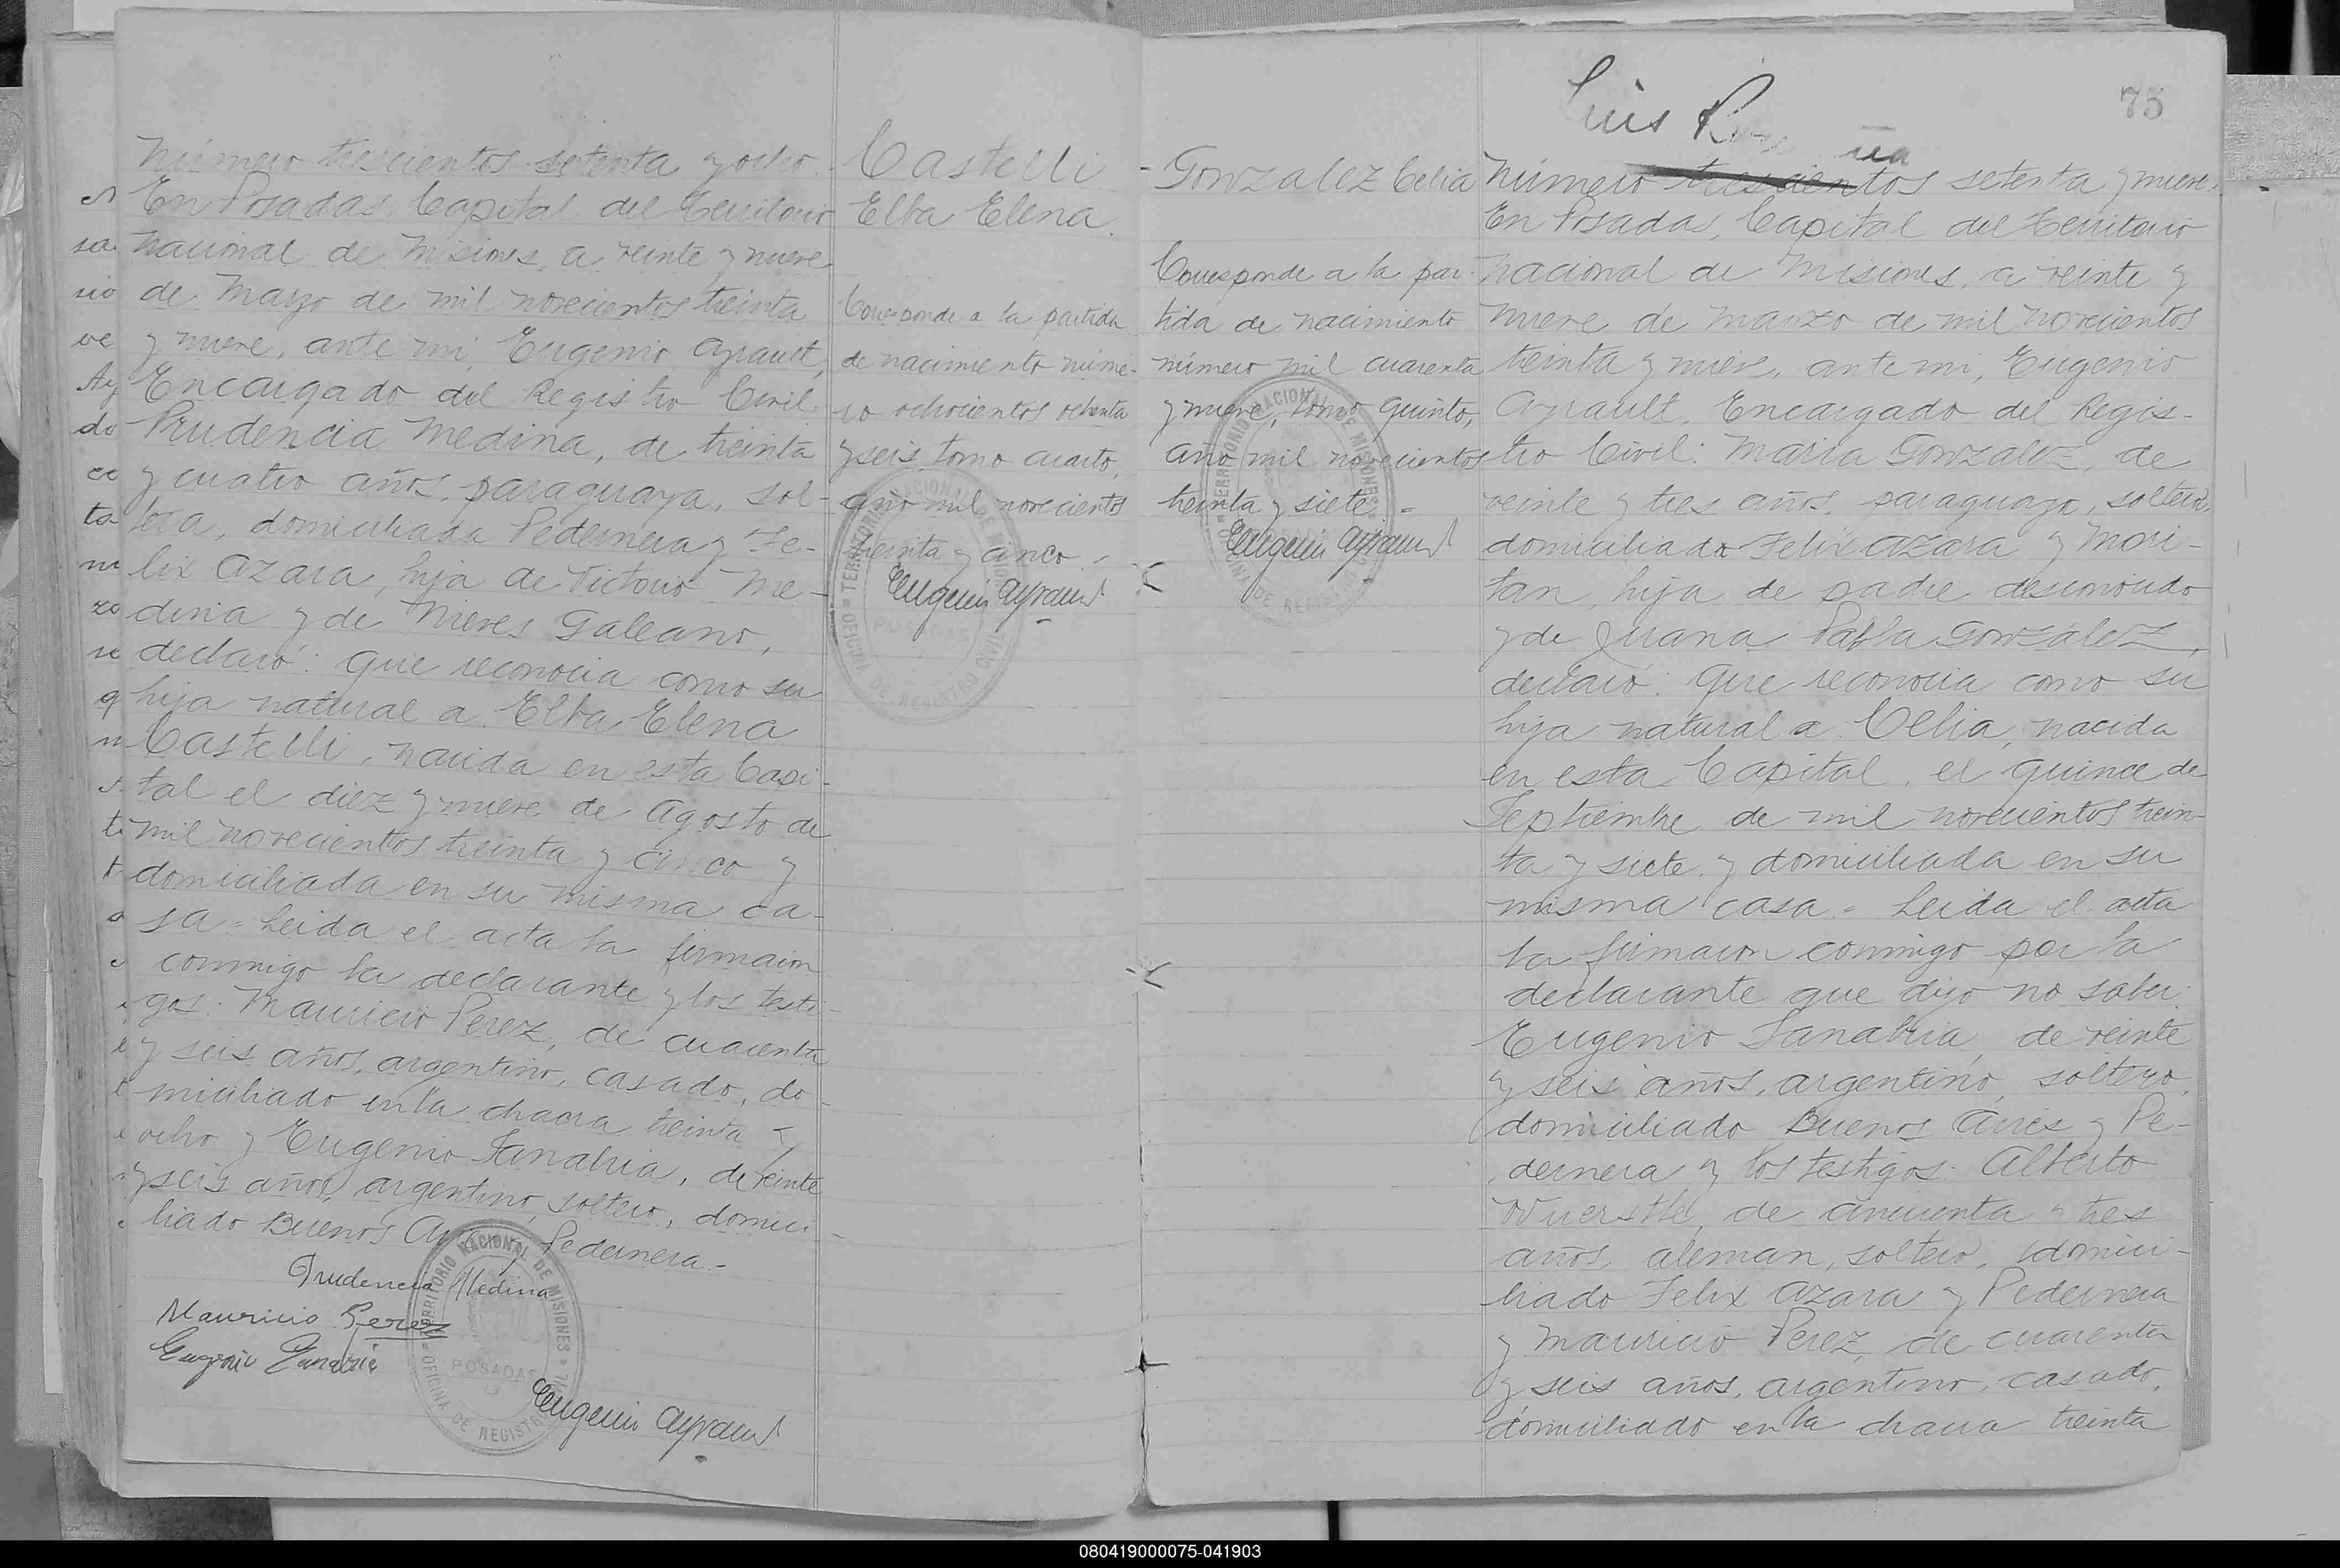 Número trescientos setenta y ocho.
En Posadas, Capital del Territorio
Nacional de Misiones, a veinte y nueve
de Marzo de mil novecientos treinta
y nueve, ante mi, Eugenio Ayrault,
Encargado del Registro Civil
Prudencia Medina, de treinta
y cuatro años, paraguaya, sol-
tera, domiciliada Pedernera y Fe-
lix Azara, hija de Victorio Me-
dina y de Nieves Galeano,
declaró: Que reconocia como su
hija natural a Elba Elena
Castelli, nacida en esta Capi-
tal el diez y nueve de Agosto de
mil novecientos treinta y cinco y
domiciliada en su misma ca-
sa = Leida el acta la firmaron
conmigo la declarante y los testi-
gos: Mauricio Perez, de cuarenta
y seis años, argentino, casado, do-
miciliado en la chacra treinta y
ocho y Eugenio Sanabria, de veinte
y seis años, argentino, soltero, domici-
liado Buenos Aires y Pedernera.-
Prudencia Medina
Mauricio Perez
Eugenio Sanabria
TERRITORIO NACIONAL DE MISIONES
POSADAS
OFICINA DE REGISTRO CIVIL
Eugenio Ayrault
Castelli
Elba Elena.
Corresponde a la partida
de nacimiento núme-
ro ochocientos ochenta
y seis, tomo cuarto,
año mil novecientos
treinta y cinco.-
Eugenio Ayrault
TERRITORIO NACIONAL DE MISIONES
POSADAS
OFICINA DE REGISTRO CIVIL
Gonzalez Celia
Corresponde a la par-
tida de nacimiento
número mil cuarenta
y nueve, tomo quinto,
año mil novecientos
treinta y siete.=
Eugenio Ayrault
TERRITORIO NACIONAL DE MISIONES
OFICINA DE REGISTRO CIVIL
Luis
75
Número trescientos setenta y nueve.
En Posadas, Capital del Territorio
Nacional de Misiones, a veinte y
nueve de Marzo de mil novecientos
treinta y nueve, ante mi, Eugenio
Ayrault, Encargado del Regis-
tro Civil: Maria Gonzalez, de
veinte y tres años, paraguaya, soltera,
domiciliada Felix Azara y Mori-
tan, hija de padre desconocido
y de Juana Pabla Gonzalez,
declaró: Que reconocia como su
hija natural a Celia, nacida
en esta Capital, el quince de
Septiembre de mil novecientos trein-
ta y siete y domiciliada en su
misma casa.= Leida el acta
la firmaron conmigo por la
declarante que dijo no saber:
Eugenio Sanabria, de veinte
y seis años, argentino, soltero,
domiciliado Buenos Aires y Pe-
dernera y los testigos: Alberto
de cincuenta y tres
años, aleman, soltero, domici-
liado Felix Azara y Pedernera
y Mauricio Perez, de cuarenta
y seis años, argentino, casado,
domiciliado en la chacra treinta
080419000075-041903